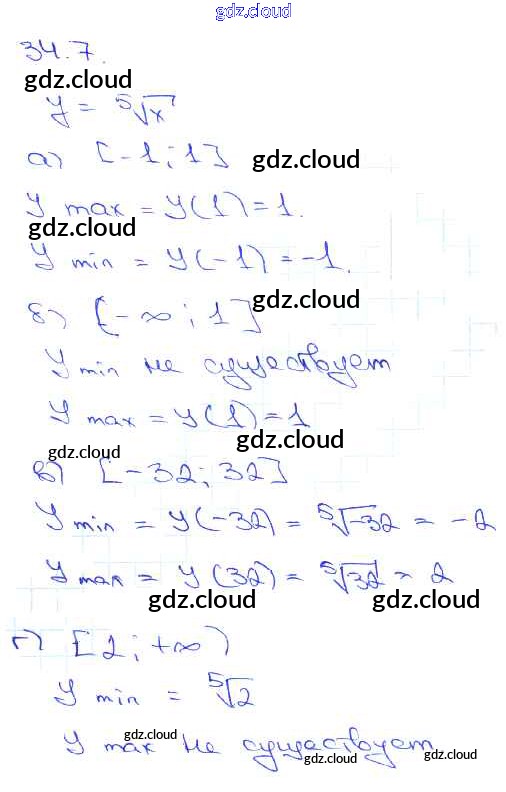 gdz.cloud
34.7.
gdz.cloud
y = ⁵√x
а) [-1; 1] gdz.cloud
y max = y(1) = 1.
gdz.cloud
y min = y(-1) = -1.
gdz.cloud
б) [-∞; 1]
y min не существует
y max = y(1) = 1
gdz.cloud
gdz.cloud
в) [-32; 32]
y min = y(-32) = ⁵√-32 = -2
y max = y(32) = ⁵√32 = 2
gdz.cloud gdz.cloud
г) [2; +∞)
y min = ⁵√2
gdz.cloud
y max не существует
gdz.cloud gdz.cloud